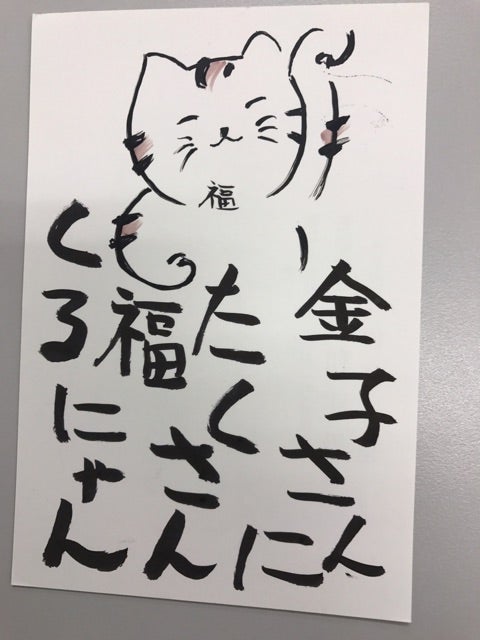 福
金子さんに
たくさん
福
くるにゃん